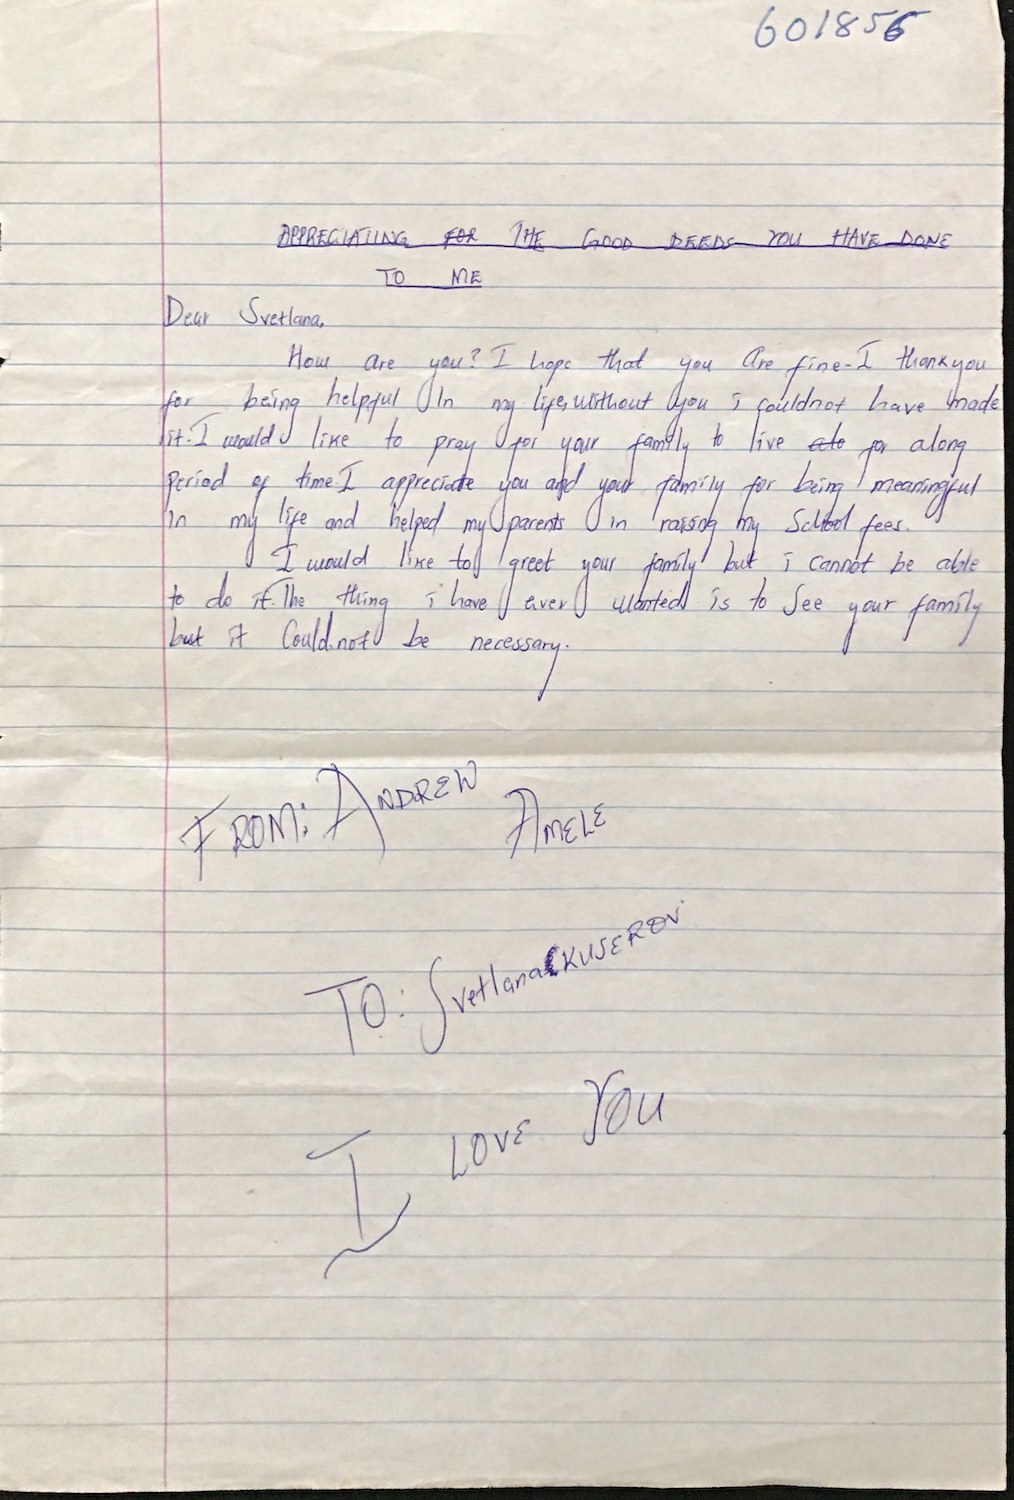 601856
APPRECIATING FOR THE GOOD DEEDS YOU HAVE DONE
TO ME
Dear Svetlana,
How are you? I hope that you are fine-I thankyou
for being helpful In my life, without you i couldnot have made
it. I would like to pray for your family to live for along
period of time. I appreciate you and your family for being meaningful
in my life and helped my parents in raising my School fees.
I would like to greet your family but i cannot be able
to do it. The thing i have ever wanted is to See your family
but it Could not be necessary.
FROM: ANDREW
AMELE
TO: Svetlana KUSEROV
I LOVE YOU